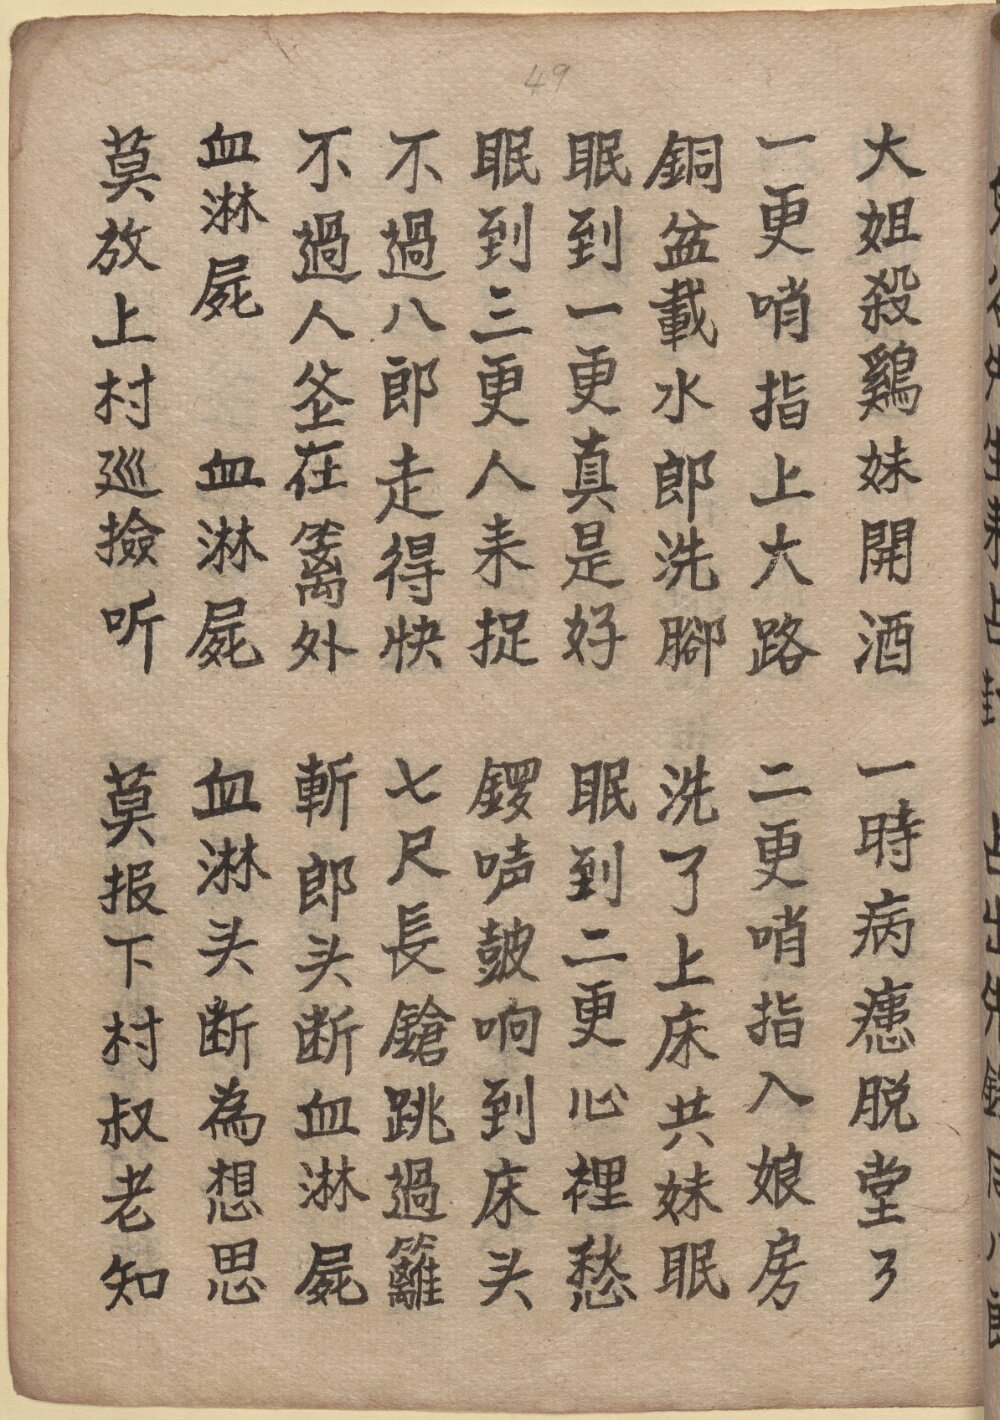 49
大姐殺鷄妹開酒 一時病悳脱堂了
一更哨指上大路 二更哨指入娘房
銅盆載水郎洗腳 洗了上床共妹眠
眠到一更真是好 眠到二更心裡愁
眠到三更人耒捉 鑼唪皷响到床头
不過八郎走得快 七尺長鎗跳過籬
不過人坐在籬外 斬郎头断血淋屍
血淋屍 血淋屍 血淋头断為想思
莫放上村巡撿听 莫报下村叔老知